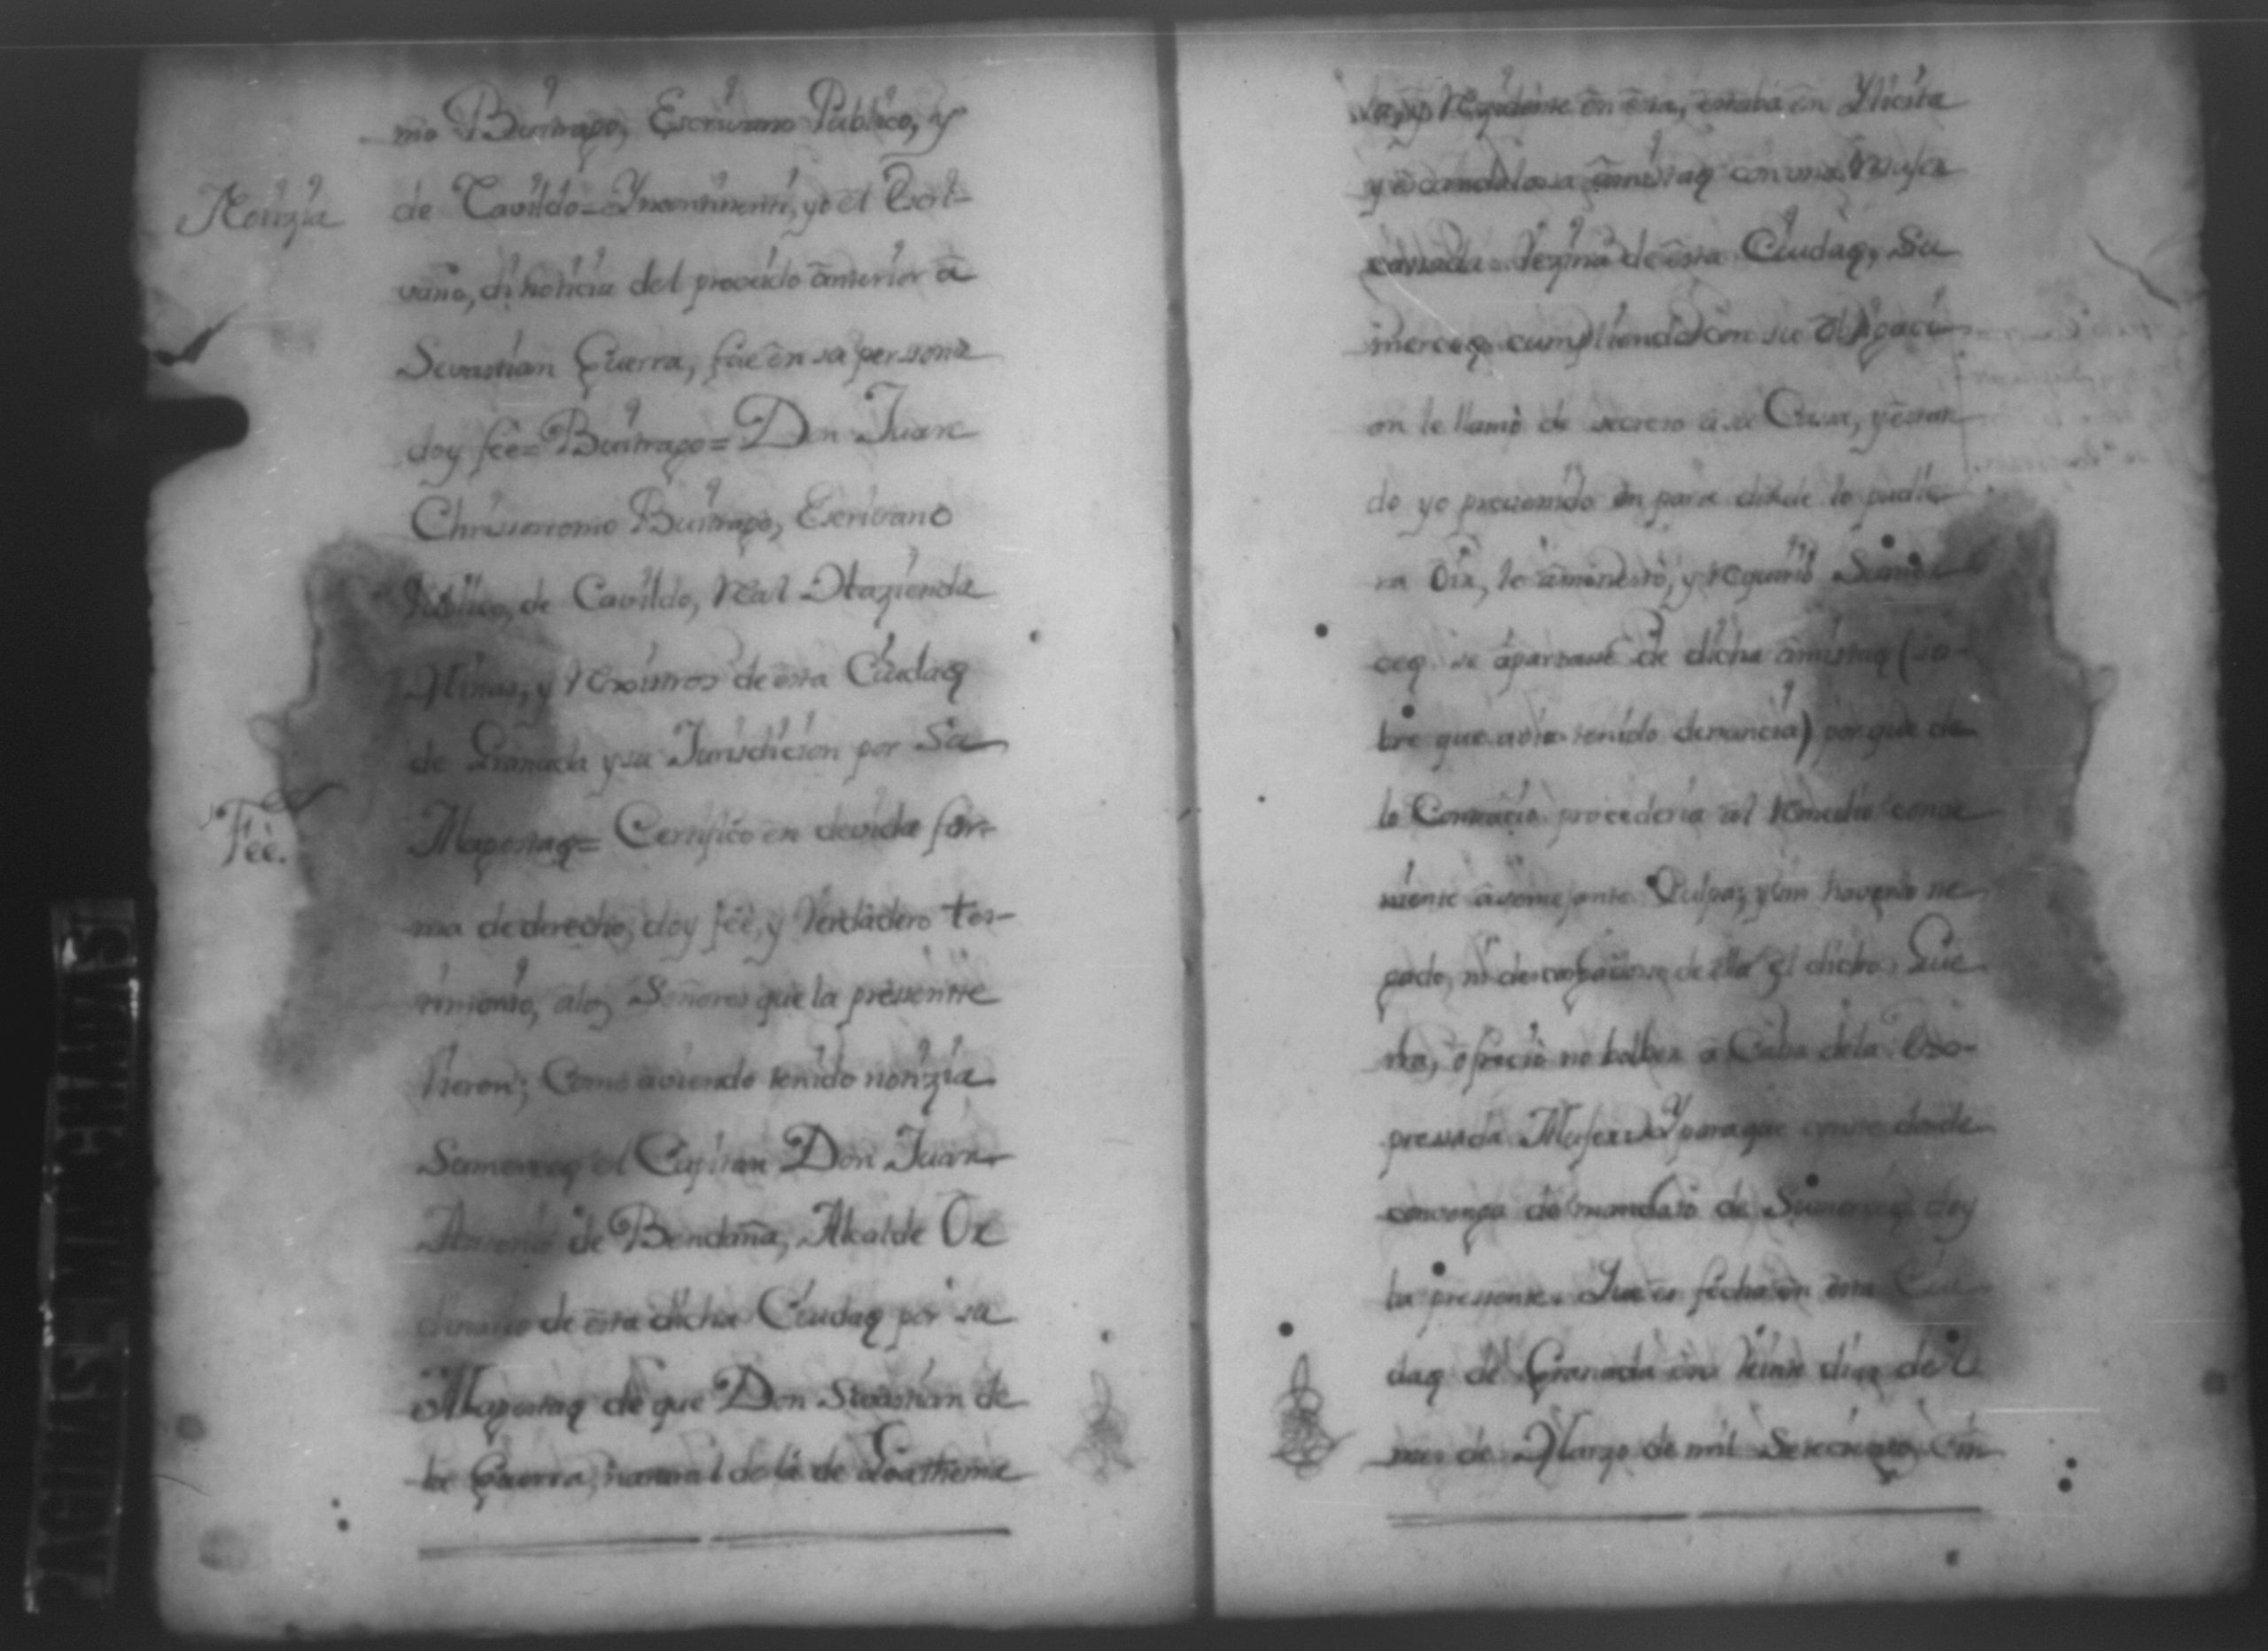 mo Buitrago, Escrivano Publico, y
Notizia
de Cavildo = Yncontinenti, yo el Escri-
vano, di noticia del proveido anterior a
Sevastian Guerra, fue en su persona
doy feè = Buitrago = Don Juan
Chrisostomo Buitrago, Escrivano
Publico, de Cavildo, Real Hazienda
Minas, y Rexistros de esta Ciudad
de Granada y su Jurisdicion por Su
Feè.
Magestad = Certifico en devida for-
ma de derecho, doy feè, y Verdadero tes-
timonio, a los Señores que la presente
vieren; Como aviendo tenido notizia
Sumerced el Capitan Don Juan
Antonio de Bendaña, Alcalde Or
dinario de esta dicha Ciudad por su
Magestad de que Don Sevastian de
la Guerra, natural de la de Goathema
la, y Residente en esta, estaba en Ylicita
y escandalosa amistad con una Muger
cassada Vezina de esta Ciudad, Su
merced cumpliendo con su obligaci
on le llamò de secreto a su Casa, y estan
do yo prevenido en parte donde lo pudie
ra Oir, le amonestò, y requirió Sumer
ced se apartase de dicha amistad (so-
bre que avia tenido denuncia) porque de
lo Contrario procederia al remedio conve
niente a semejante Culpa, y sin haverse ne
gado, ni de ella el dicho Gue
rra, ofreciò no bolber a Casa de la Exp-
pressada Muger. Y para que conste donde
convenga de mandato de Sumerced doy
la pressente. Que es fecha en esta Ciu
dad de Granada en veinte dias del
mes de Marzo de mil Setecientos Cin
PAGINAS MANCHADAS